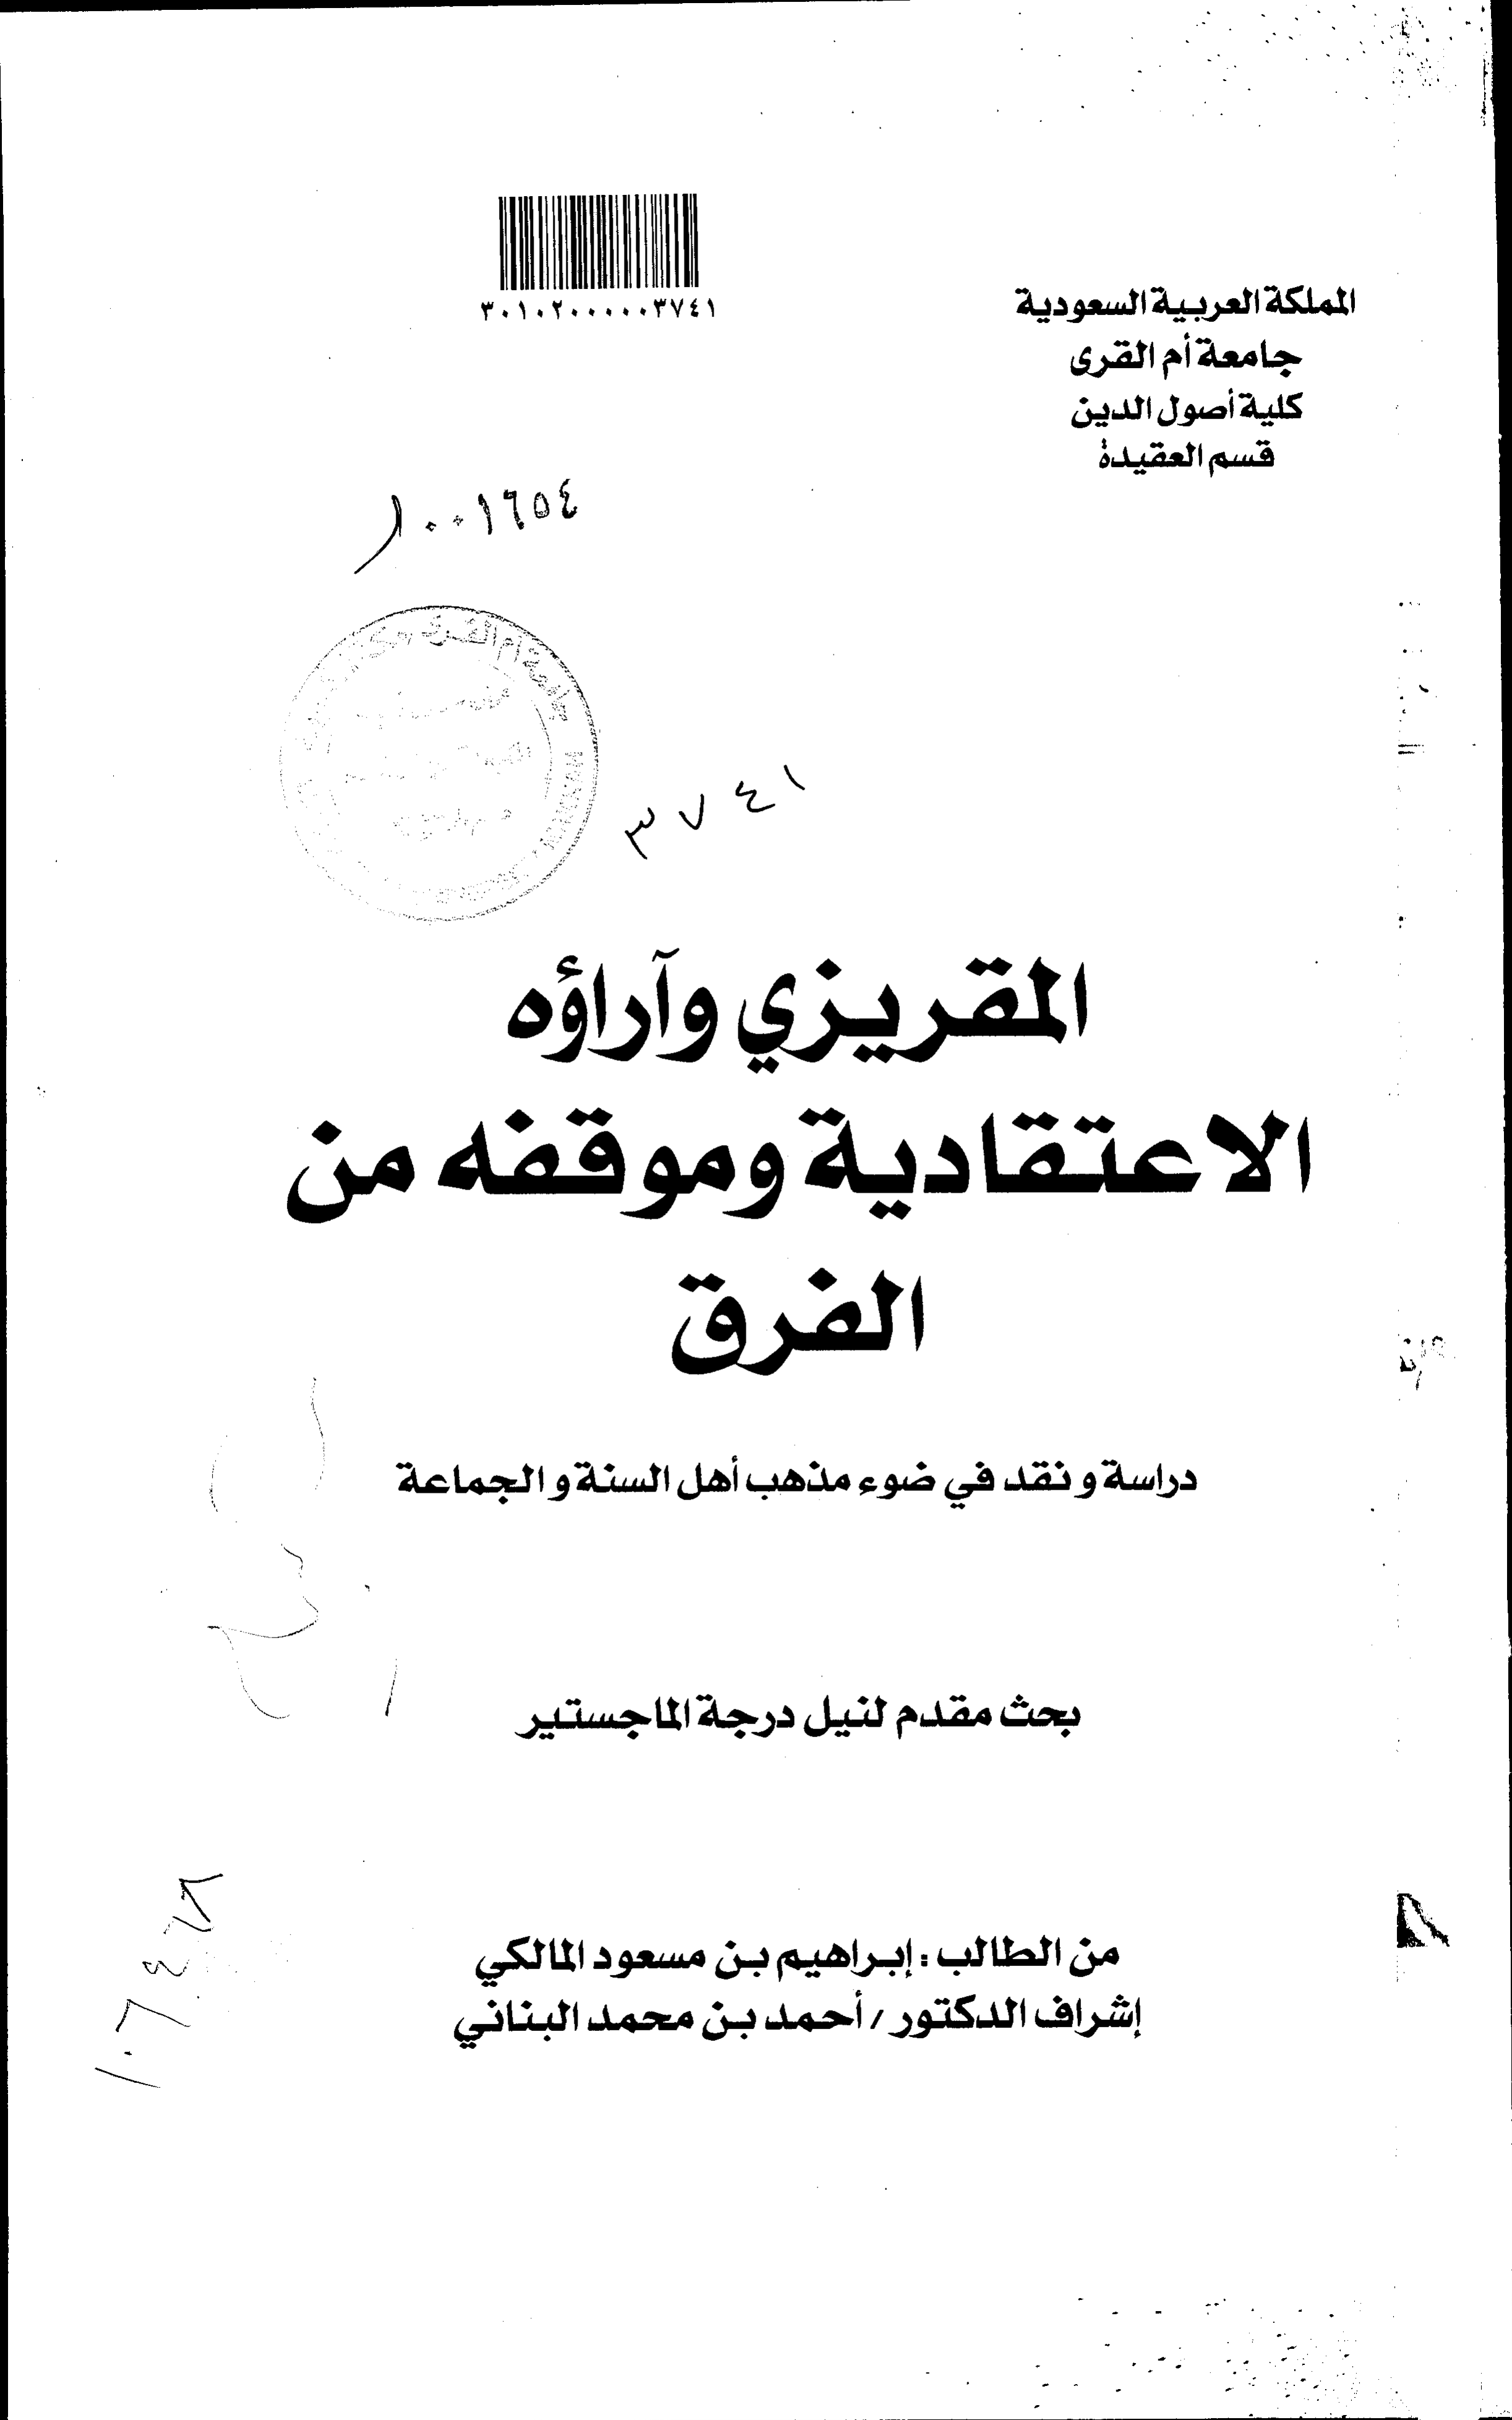 المملكة العربية السعودية
جامعة أم القرى
كلية أصول الدين
قسم العقيدة
٣٠١٠٢٠٠٠٠٠٠٣٧٤١
٠٠١٦٥٤
جامعة أم القرى
٣٧٤١
المقريزي وآراؤه
الاعتقادية وموقفه من
الفرق
دراسة و نقد في ضوء مذهب أهل السنة و الجماعة
بحث مقدم لنيل درجة الماجستير
من الطالب : إبراهيم بن مسعود المالكي
إشراف الدكتور / أحمد بن محمد البناني